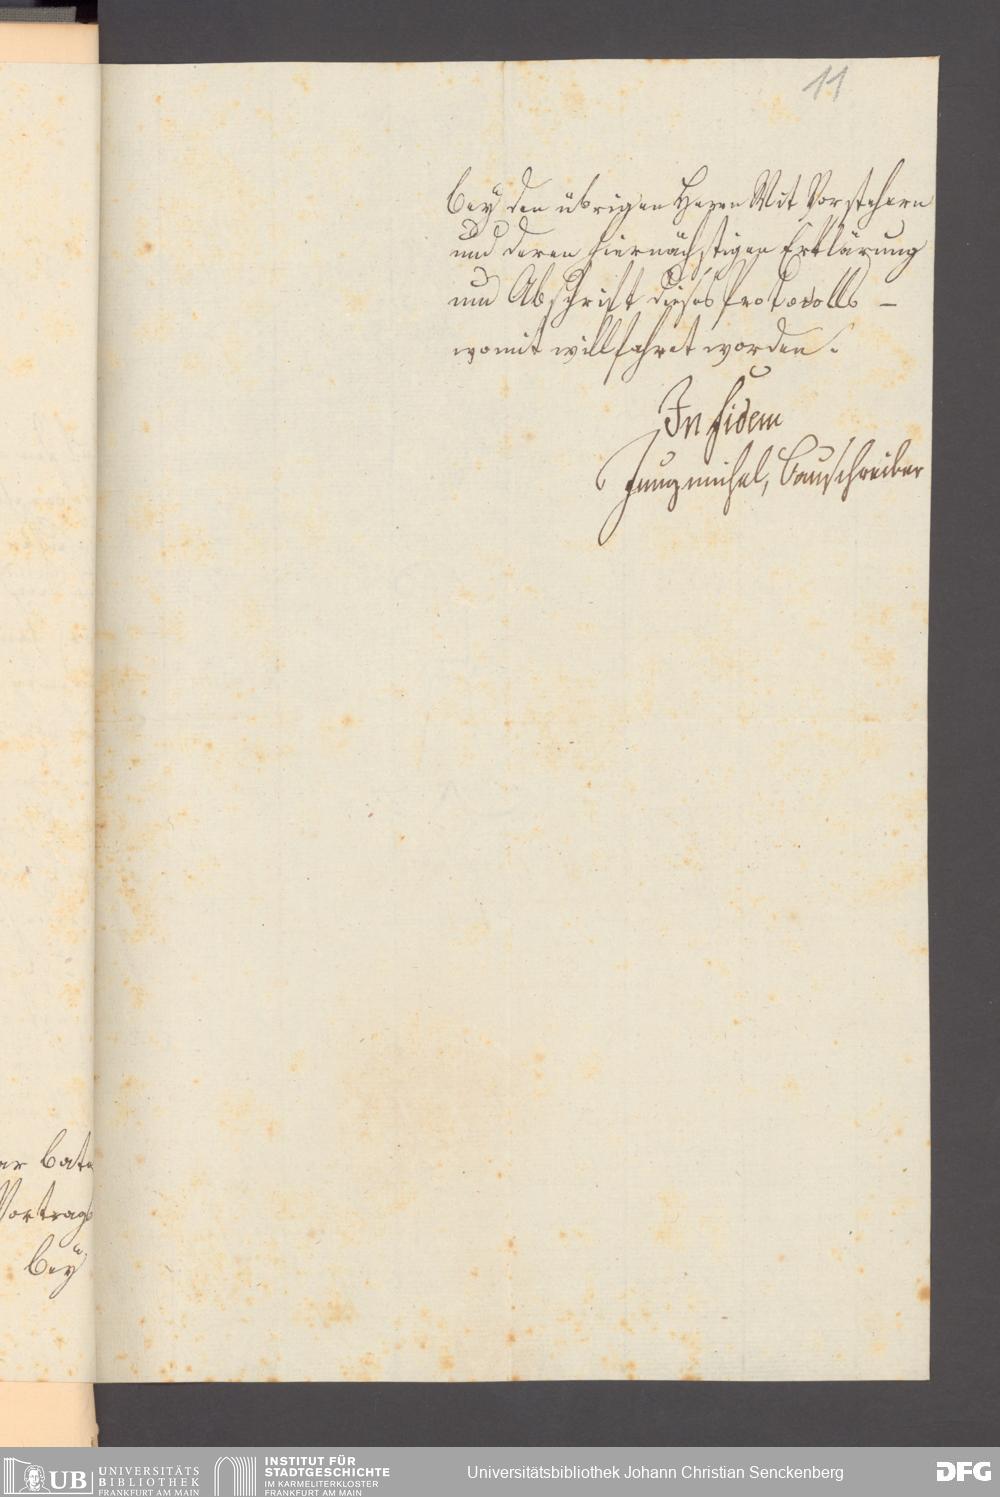 11
beÿ den übrigen Herrn Mit Vorstehern
und deren hiernächstigen Erklärung
um Abschrift dieses Protocolls –
womit willfahret worden.
In fidem
Jungmichel, Bauschreiber
er bate
Vortrags
beÿ
UB UNIVERSITÄTS
BIBLIOTHEK
FRANKFURT AM MAIN
INSTITUT FÜR
STADTGESCHICHTE
IM KARMELITERKLOSTER
FRANKFURT AM MAIN
Universitätsbibliothek Johann Christian Senckenberg
DFG